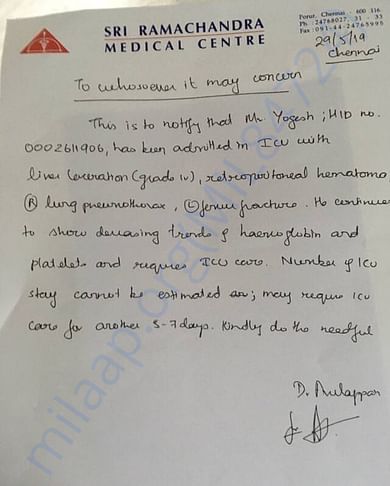 SRI RAMACHANDRA
MEDICAL CENTRE
Porur, Chennai - 600 116.
Ph : 24768027, 31 - 33
Fax : 091-44-24765995
29/5/19
Chennai
To whosoever it may concern
This is to notify that Mr. Yogesh ; HID no.
0002611906, has been admitted in ICU with
liver laceration (grade IV), retroperitoneal hematoma
(R) lung pneumothorax, (L) femur fracture. He continues
to show decreasing trends of haemoglobin and
platelets and requires ICU care. Number of ICU
stay cannot be estimated as; may require ICU
care for another 5-7 days. Kindly do the needful
D.
milaap.org